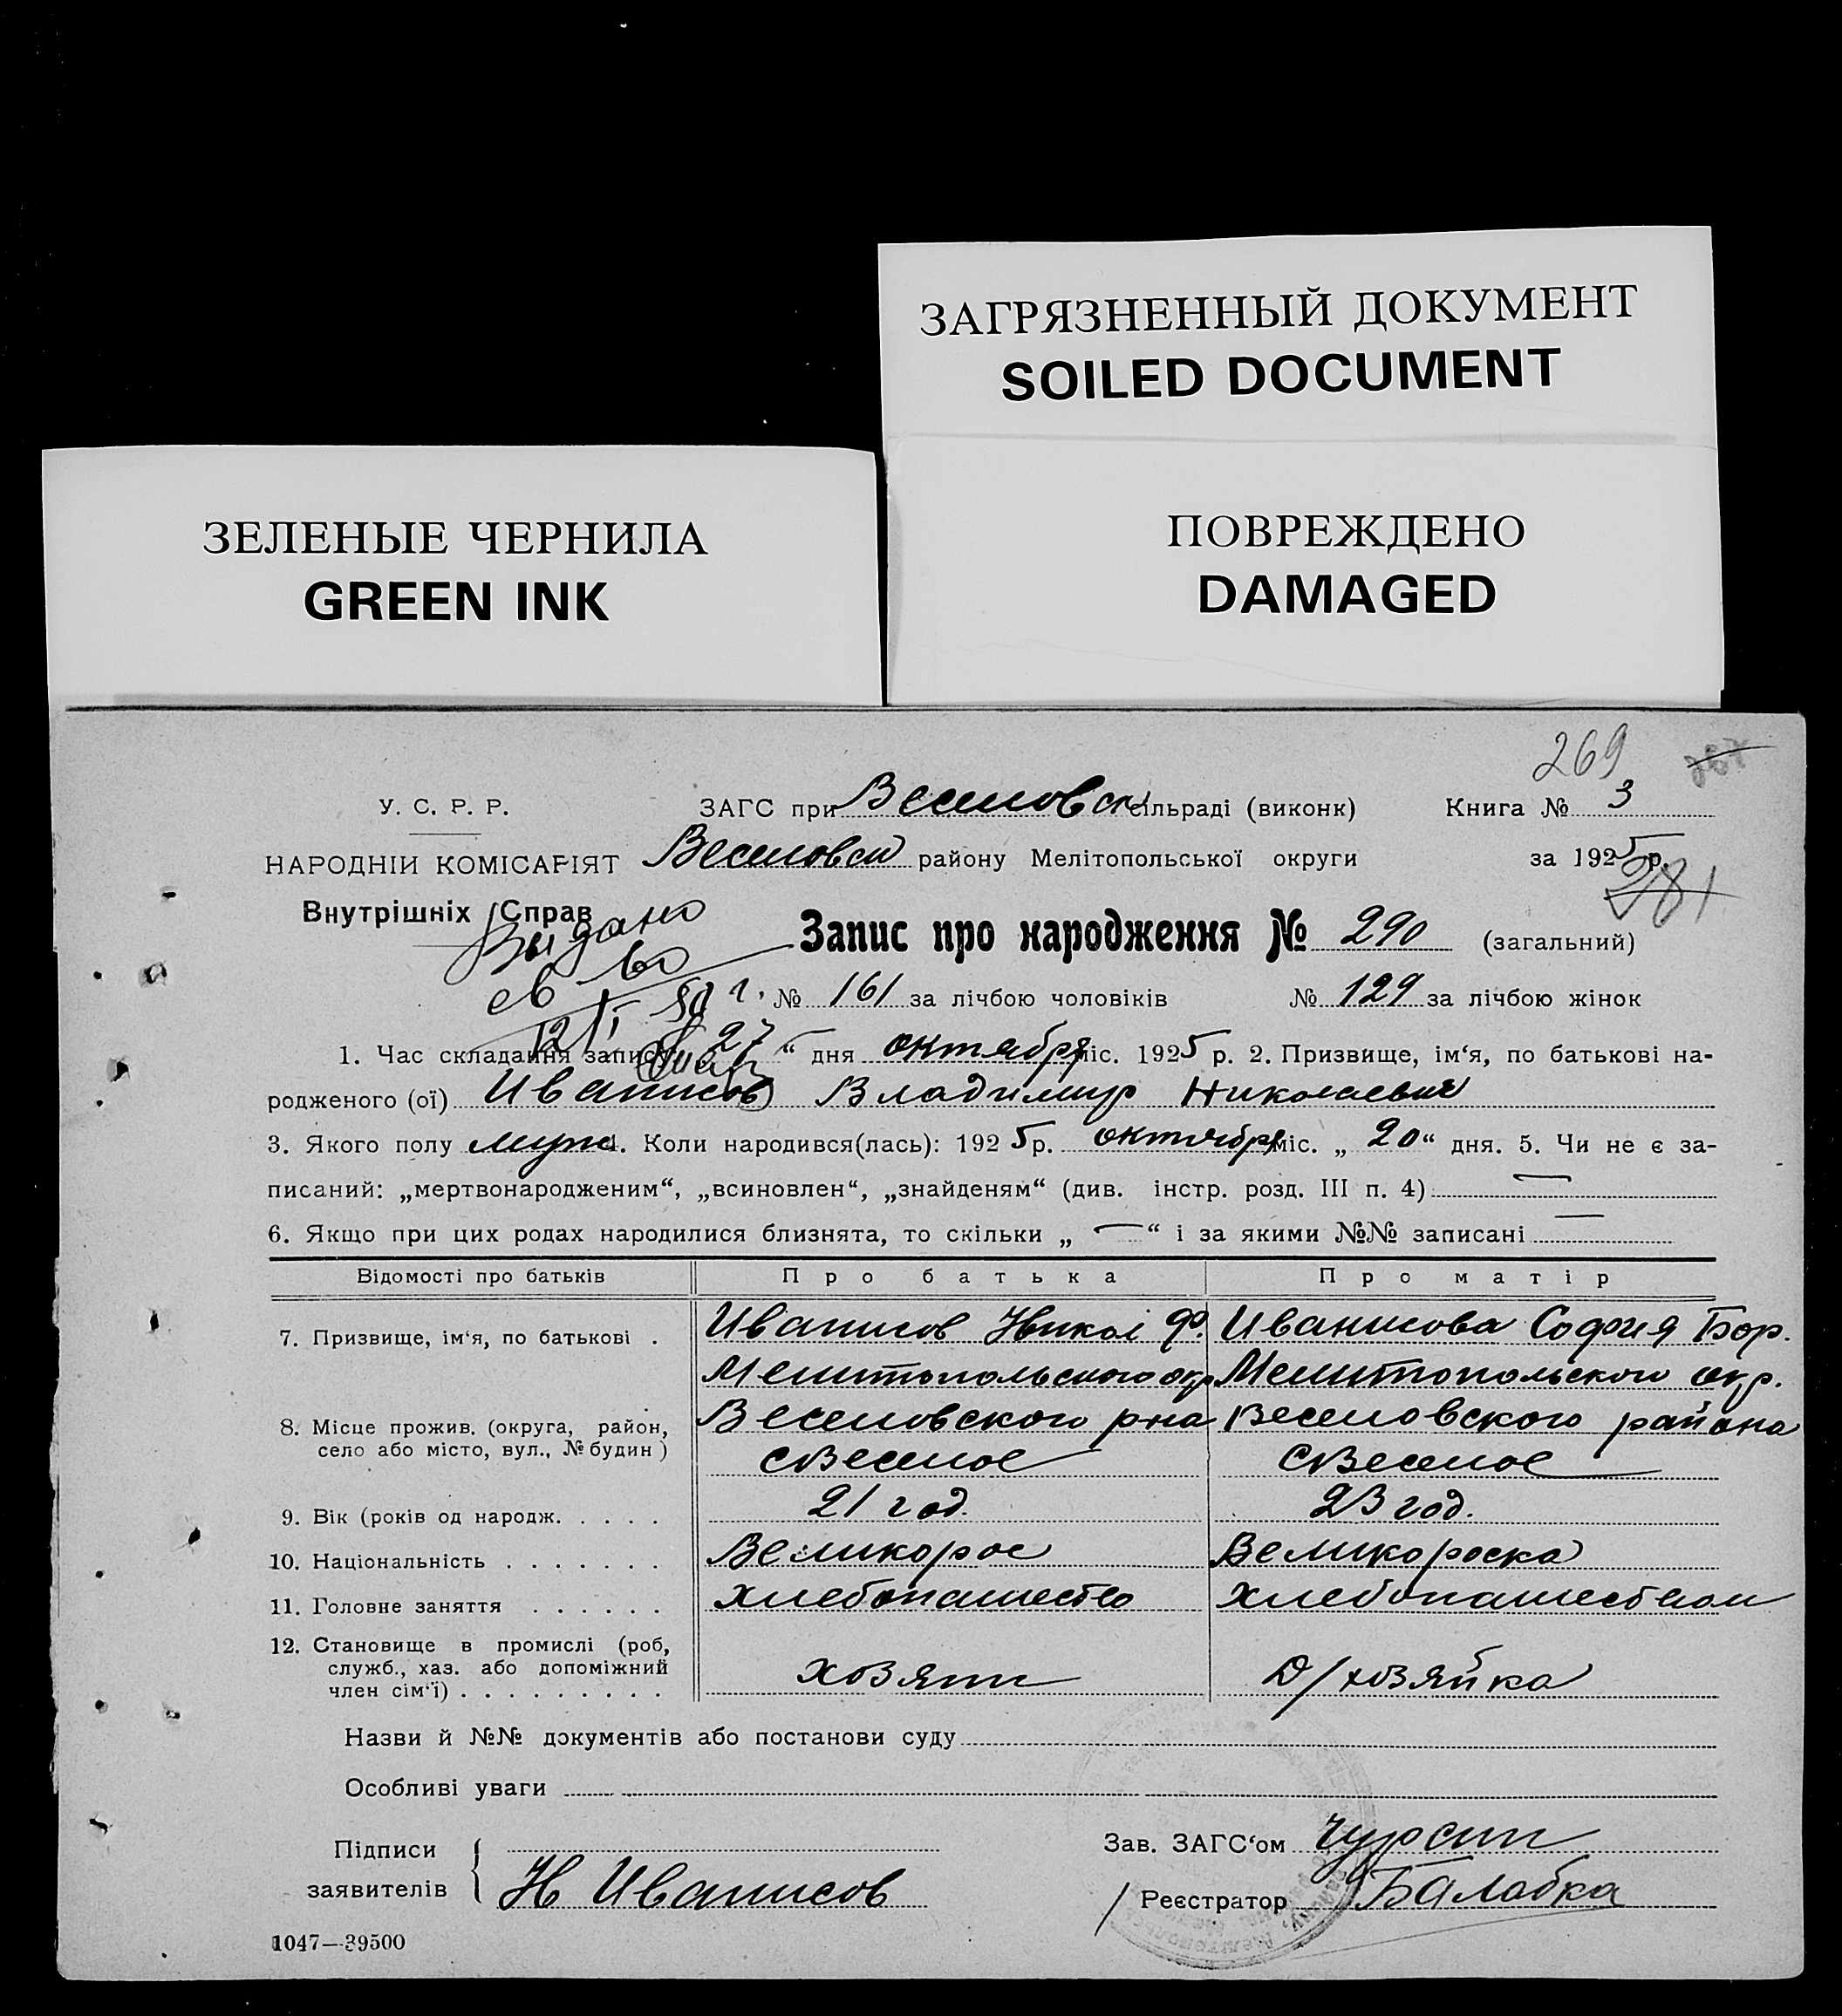 ЗАГРЯЗНЕННЫЙ ДОКУМЕНТ
SOILED DOCUMENT
ЗЕЛЕНЫЕ ЧЕРНИЛА
GREEN INK
ПОВРЕЖДЕНО
DAMAGED
269
У. С. Р. Р. ЗАГС при Веселовск сільраді (виконк) Книга № 3
НАРОДНІЙ КОМІСАРІЯТ Веселовск району Мелітопольської округи за 1925 р.
281
Внутрішніх Справ
Выдано
св-во
Запис про народження № 290 (загальний)
№ 161 за лічбою чоловіків № 129 за лічбою жінок
1. Час складання запису: „27“ дня октября міс. 1925 р. 2. Призвище, ім‘я, по батькові на-
родженого (ої) Иванисов Владимир Николаевич
3. Якого полу муж 4. Коли народився(лась): 1925 р. октября міс. „20“ дня. 5. Чи не є за-
писаний: „мертвонародженим“, „всиновлен“, „знайденям“ (див. інстр. розд. III п. 4) —
6. Якщо при цих родах народилися близнята, то скільки „—“ і за якими №№ записані —
Відомості про батьків Про батька Про матір
7. Призвище, ім‘я, по батькові . Иванисов Никол Иванисова София Бор.
Мелитопольского окр Мелитопольского окр.
8. Місце прожив. (округа, район, Веселовского рна Веселовского района
село або місто, вул., № будин) с Веселое с Веселое
9. Вік (років од народж. . . . . 21 год. 23 год.
10. Національність . . . . . . . Великорос Великороска
11. Головне заняття . . . . . . Хлебопашество Хлебопашеством
12. Становище в промислі (роб,
служб., хаз. або допоміжний хозяин д/хозяйка
член сім‘ї) . . . . . . . . .
Назви й №№ документів або постанови суду
Особливі уваги
Підписи Зав. ЗАГС‘ом Чурсин
заявителів Н Иванисов Реєстратор Балабка
1047—39500